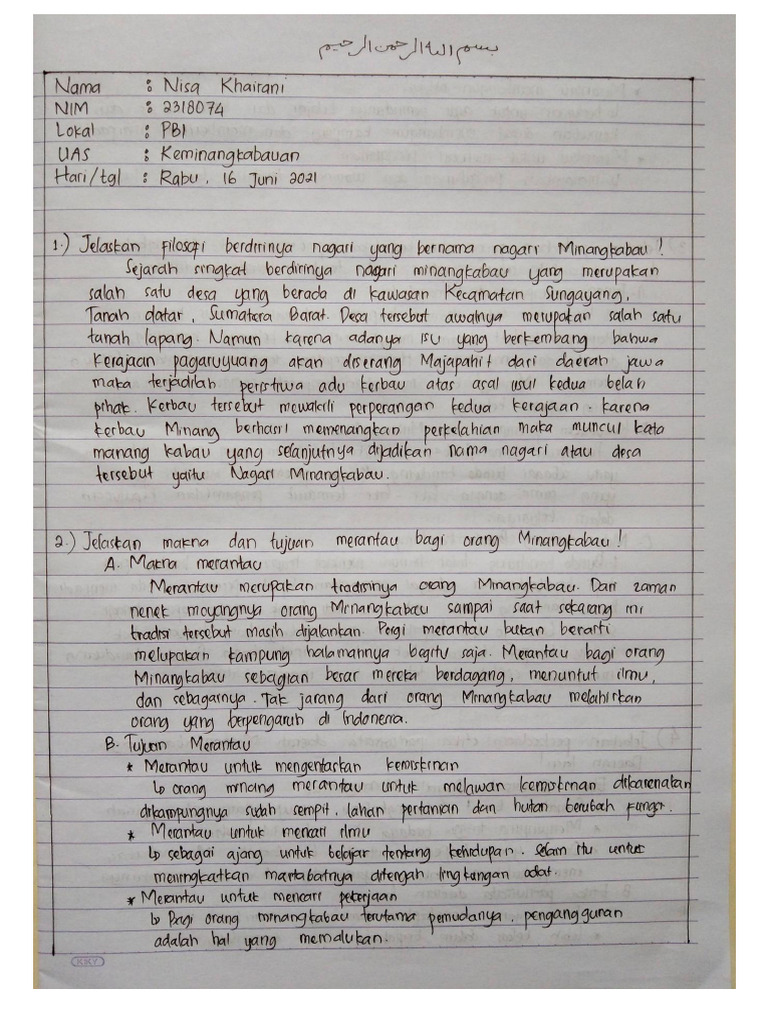 بسم الله الرحمن الرحيم
Nama : Nisa Khairani
NIM : 2318074
Lokal : PBI
UAS : Keminangkabauan
Hari/tgl : Rabu, 16 Juni 2021
1.) Jelaskan filosofi berdirinya nagari yang bernama nagari Minangkabau!
Sejarah singkat berdirinya nagari minangkabau yang merupakan
salah satu desa yang berada di kawasan Kecamatan Sungayang,
Tanah datar, Sumatera Barat. Desa tersebut awalnya merupakan salah satu
tanah lapang. Namun karena adanya isu yang berkembang bahwa
Kerajaan pagaruyuang akan diserang Majapahit dari daerah jawa
maka terjadilah peristiwa adu kerbau atas asal usul kedua belah
pihak. Kerbau tersebut mewakili perperangan kedua kerajaan. karena
kerbau Minang berhasil memenangkan perkelahian maka muncul kata
manang kabau yang selanjutnya dijadikan nama nagari atau desa
tersebut yaitu Nagari Minangkabau.
2.) Jelaskan makna dan tujuan merantau bagi orang Minangkabau!
A. Makna merantau
Merantau merupakan tradisinya orang Minangkabau. Dari zaman
nenek moyangnya orang Minangkabau sampai saat sekarang ini
tradisi tersebut masih dijalankan. Pergi merantau bukan berarti
melupakan kampung halamannya begitu saja. Merantau bagi orang
Minangkabau sebagian besar mereka berdagang, menuntut ilmu,
dan sebagainya. Tak jarang dari orang Minangkabau melahirkan
orang yang berpengaruh di Indonesia.
B. Tujuan Merantau
* Merantau untuk mengentaskan kemiskinan
↳ orang minang merantau untuk melawan kemiskinan dikarenakan
dikampungnya sudah sempit, lahan pertanian dan hutan berubah fungsi.
* Merantau untuk mencari ilmu
↳ sebagai ajang untuk belajar tentang kehidupan. selain itu untuk
meningkatkan martabatnya ditengah lingkungan adat.
* Merantau untuk mencari pekerjaan
↳ Bagi orang minangkabau terutama pemudanya, pengangguran
adalah hal yang memalukan.
KKY